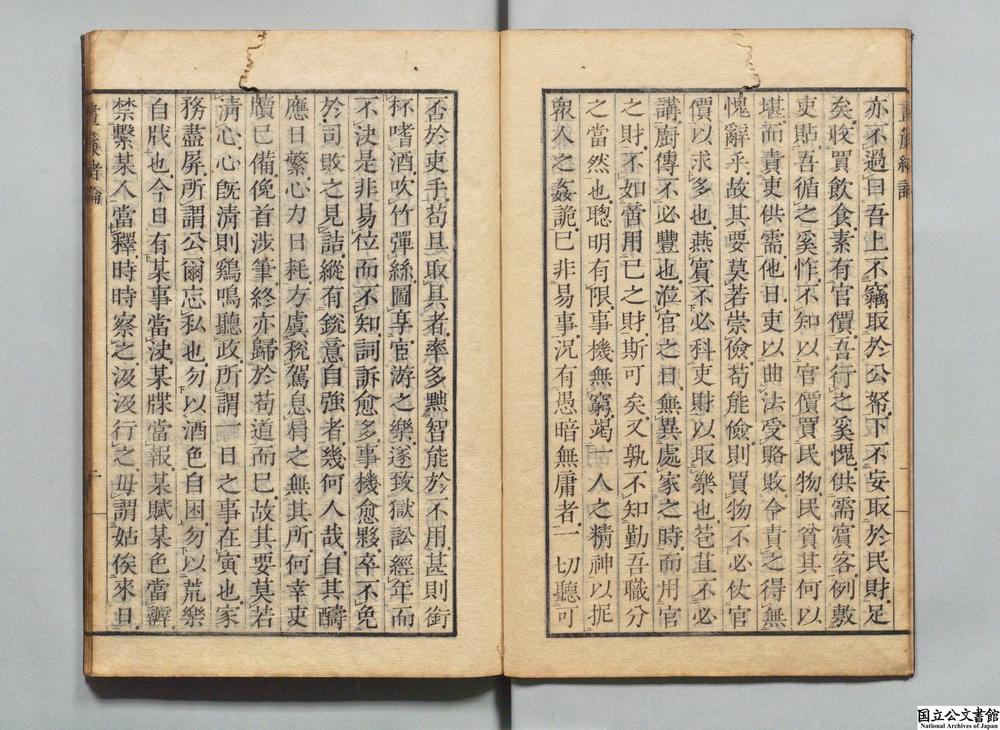 亦不過曰吾上不竊取於公帑下不妄取於民財足
矣收買飲食素有官價吾行之奚愧供需賓客例敷
吏貼吾循之奚怍不知以官價買民物民貧其何以
堪而責吏供需他日吏以曲法受賂敗令責之得無
愧辭乎故其要莫若崇儉苟能儉則買物不必仗官
價以求多也燕賓不必科吏財以取樂也苞苴不必
講廚傳不必豐也涖官之日無異處家之時而用官
之財不如嗇用己之財斯可矣又孰不知勤吾職分
之當然也聰明有限事機無窮竭一人之精神以扼
眾人之姦詭已非易事況有愚暗無庸者一切聽可
否於吏手苟且取具者率多黠智能於不用甚則銜
杯嗜酒吹竹彈絲圖享宦游之樂遂致獄訟經年而
不決是非易位而不知詞訴愈多事機愈夥卒不免
於司敗之見詰縱有銳意自強者幾何人哉自其醻
應日繁心力日耗方虞稅駕息肩之無其所何幸吏
牘已備俛首涉筆終亦歸於苟道而已故其要莫若
清心心旣清則鷄鳴聽政所謂一日之事在寅也家
務盡屏所謂公爾忘私也勿以酒色自困勿以荒樂
自戕也今日有某事當決某牒當報某賦某色當辦
禁繫某人當釋時時察之汲汲行之毋謂姑俟來日
晝簾緒論
晝簾緒論
二
国立公文書館
National Archives of Japan